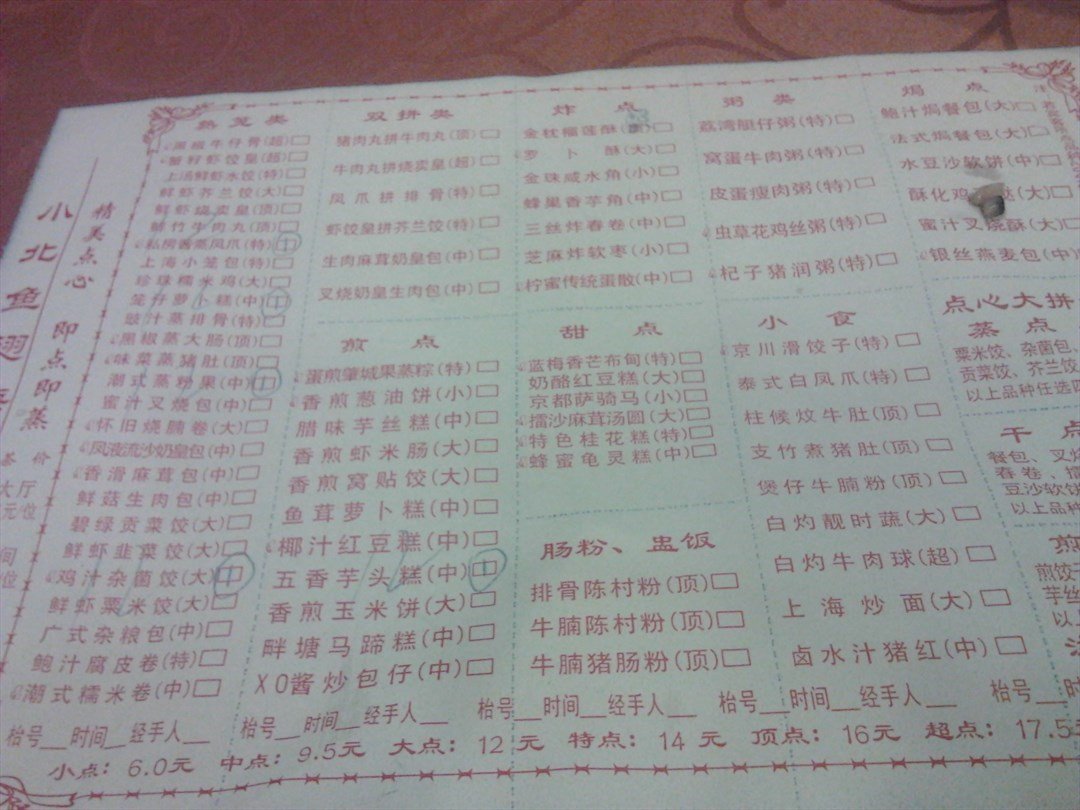 小北鱼翅
精美点心 即点即蒸
茶价
大厅
元位
蒸笼类
黑椒牛仔骨(超)
蟹籽虾饺皇(超)
上汤鲜虾水饺(特)
鲜虾芥兰饺(大)
鲜虾烧卖皇(顶)
鲜竹牛肉丸(顶)
私房酱蒸凤爪(特)
上海小笼包(特)
珍珠糯米鸡(大)
笼仔萝卜糕(中)
豉汁蒸排骨(特)
黑椒蒸大肠(顶)
味菜蒸猪肚(顶)
潮式蒸粉果(中)
蜜汁叉烧包(中)
怀旧烧腩卷(大)
凤液流沙奶皇包(中)
香滑麻茸包(中)
鲜菇生肉包(中)
碧绿贡菜饺(大)
鲜虾韭菜饺(大)
鸡汁杂菌饺(大)
鲜虾粟米饺(大)
广式杂粮包(中)
鲍汁腐皮卷(特)
潮式糯米卷(中)
双拼类
猪肉丸拼牛肉丸(顶)
牛肉丸拼烧卖皇(超)
凤爪拼排骨(特)
虾饺皇拼芥兰饺(特)
生肉麻茸奶皇包(中)
叉烧奶皇生肉包(中)
煎点
蛋煎肇城果蒸粽(特)
香煎葱油饼(小)
腊味芋丝糕(中)
香煎虾米肠(大)
香煎窝贴饺(大)
鱼茸萝卜糕(中)
椰汁红豆糕(中)
五香芋头糕(中)
香煎玉米饼(大)
畔塘马蹄糕(中)
XO酱炒包仔(中)
炸点
金枕榴莲酥
萝卜酥(大)
金珠咸水角(小)
蜂巢香芋角(中)
三丝炸春卷(中)
芝麻炸软枣(小)
柠蜜传统蛋散(中)
甜点
蓝梅香芒布甸(特)
奶酪红豆糕(大)
京都萨骑马(小)
擂沙麻茸汤圆(大)
特色桂花糕(特)
蜂蜜龟灵糕(中)
肠粉、盅饭
排骨陈村粉(顶)
牛腩陈村粉(顶)
牛腩猪肠粉(顶)
粥类
荔湾艇仔粥(特)
窝蛋牛肉粥(特)
皮蛋瘦肉粥(特)
虫草花鸡丝粥(特)
杞子猪润粥(特)
小食
京川滑饺子(特)
泰式白凤爪(特)
柱候炆牛肚(顶)
支竹煮猪肚(顶)
煲仔牛腩粉(顶)
白灼靓时蔬(大)
白灼牛肉球(超)
上海炒面(大)
卤水汁猪红(中)
焗点
鲍汁焗餐包(大)
法式焗餐包(大)
水豆沙软饼(中)
酥化鸡(大)
蜜汁叉烧酥(大)
银丝燕麦包(中)
点心大拼
蒸点
粟米饺、杂菌包、
贡菜饺、芥兰饺
以上品种任选四
干点
餐包、叉烧
春卷、擂
豆沙软饼
以上品种
煎
煎饺子
芋丝
以上
枱号__时间__经手人__ 枱号__时间__经手人__ 枱号__时间__经手人__ 枱号__时间__经手人__ 枱号__时间
小点：6.0元 中点：9.5元 大点：12元 特点：14元 顶点：16元 超点：17.5